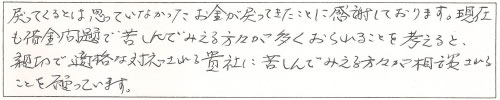 戻ってくるとは思っていなかったお金が戻ってきたことに感謝しております。現在
も借金問題で苦しんでみえる方々が多くおられることを考えると、
親切で適格な対応される貴社に苦しんでみえる方々が相談される
ことを願っています。